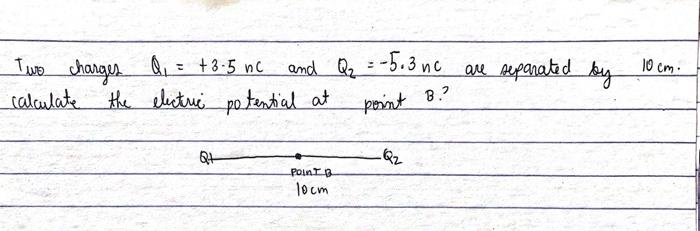 Two charges Q₁ = +3.5 nc and Q₂ = -5.3 nc are separated by 10 cm.
calculate the electric potential at point B.?
Q1 Q2
POINT B
10 cm